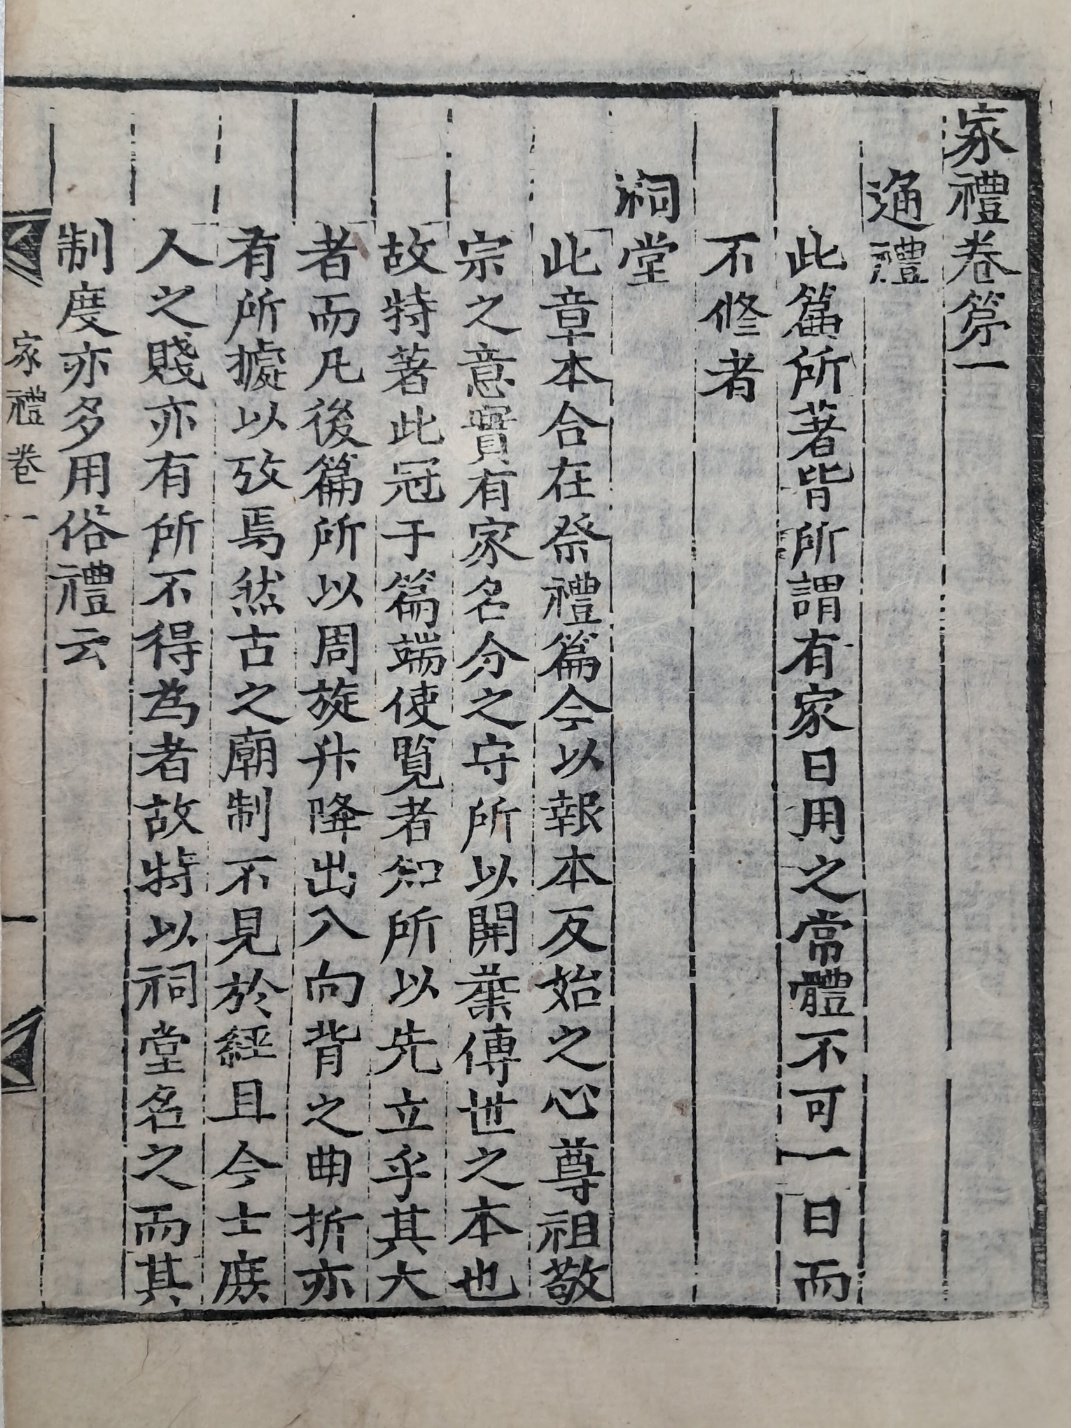 家禮卷第一
通禮
此篇所著皆所謂有家日用之常體不可一日而
不修者
祠堂
此章本合在祭禮篇今以報本反始之心尊祖敬
宗之意實有家名分之守所以開業傳世之本也
故特著此冠于篇端使覽者知所以先立乎其大
者而凡後篇所以周旋升降出入向背之曲折亦
有所據以攷焉然古之廟制不見於經且今士庶
人之賤亦有所不得為者故特以祠堂名之而其
制度亦多用俗禮云
家禮卷一
一